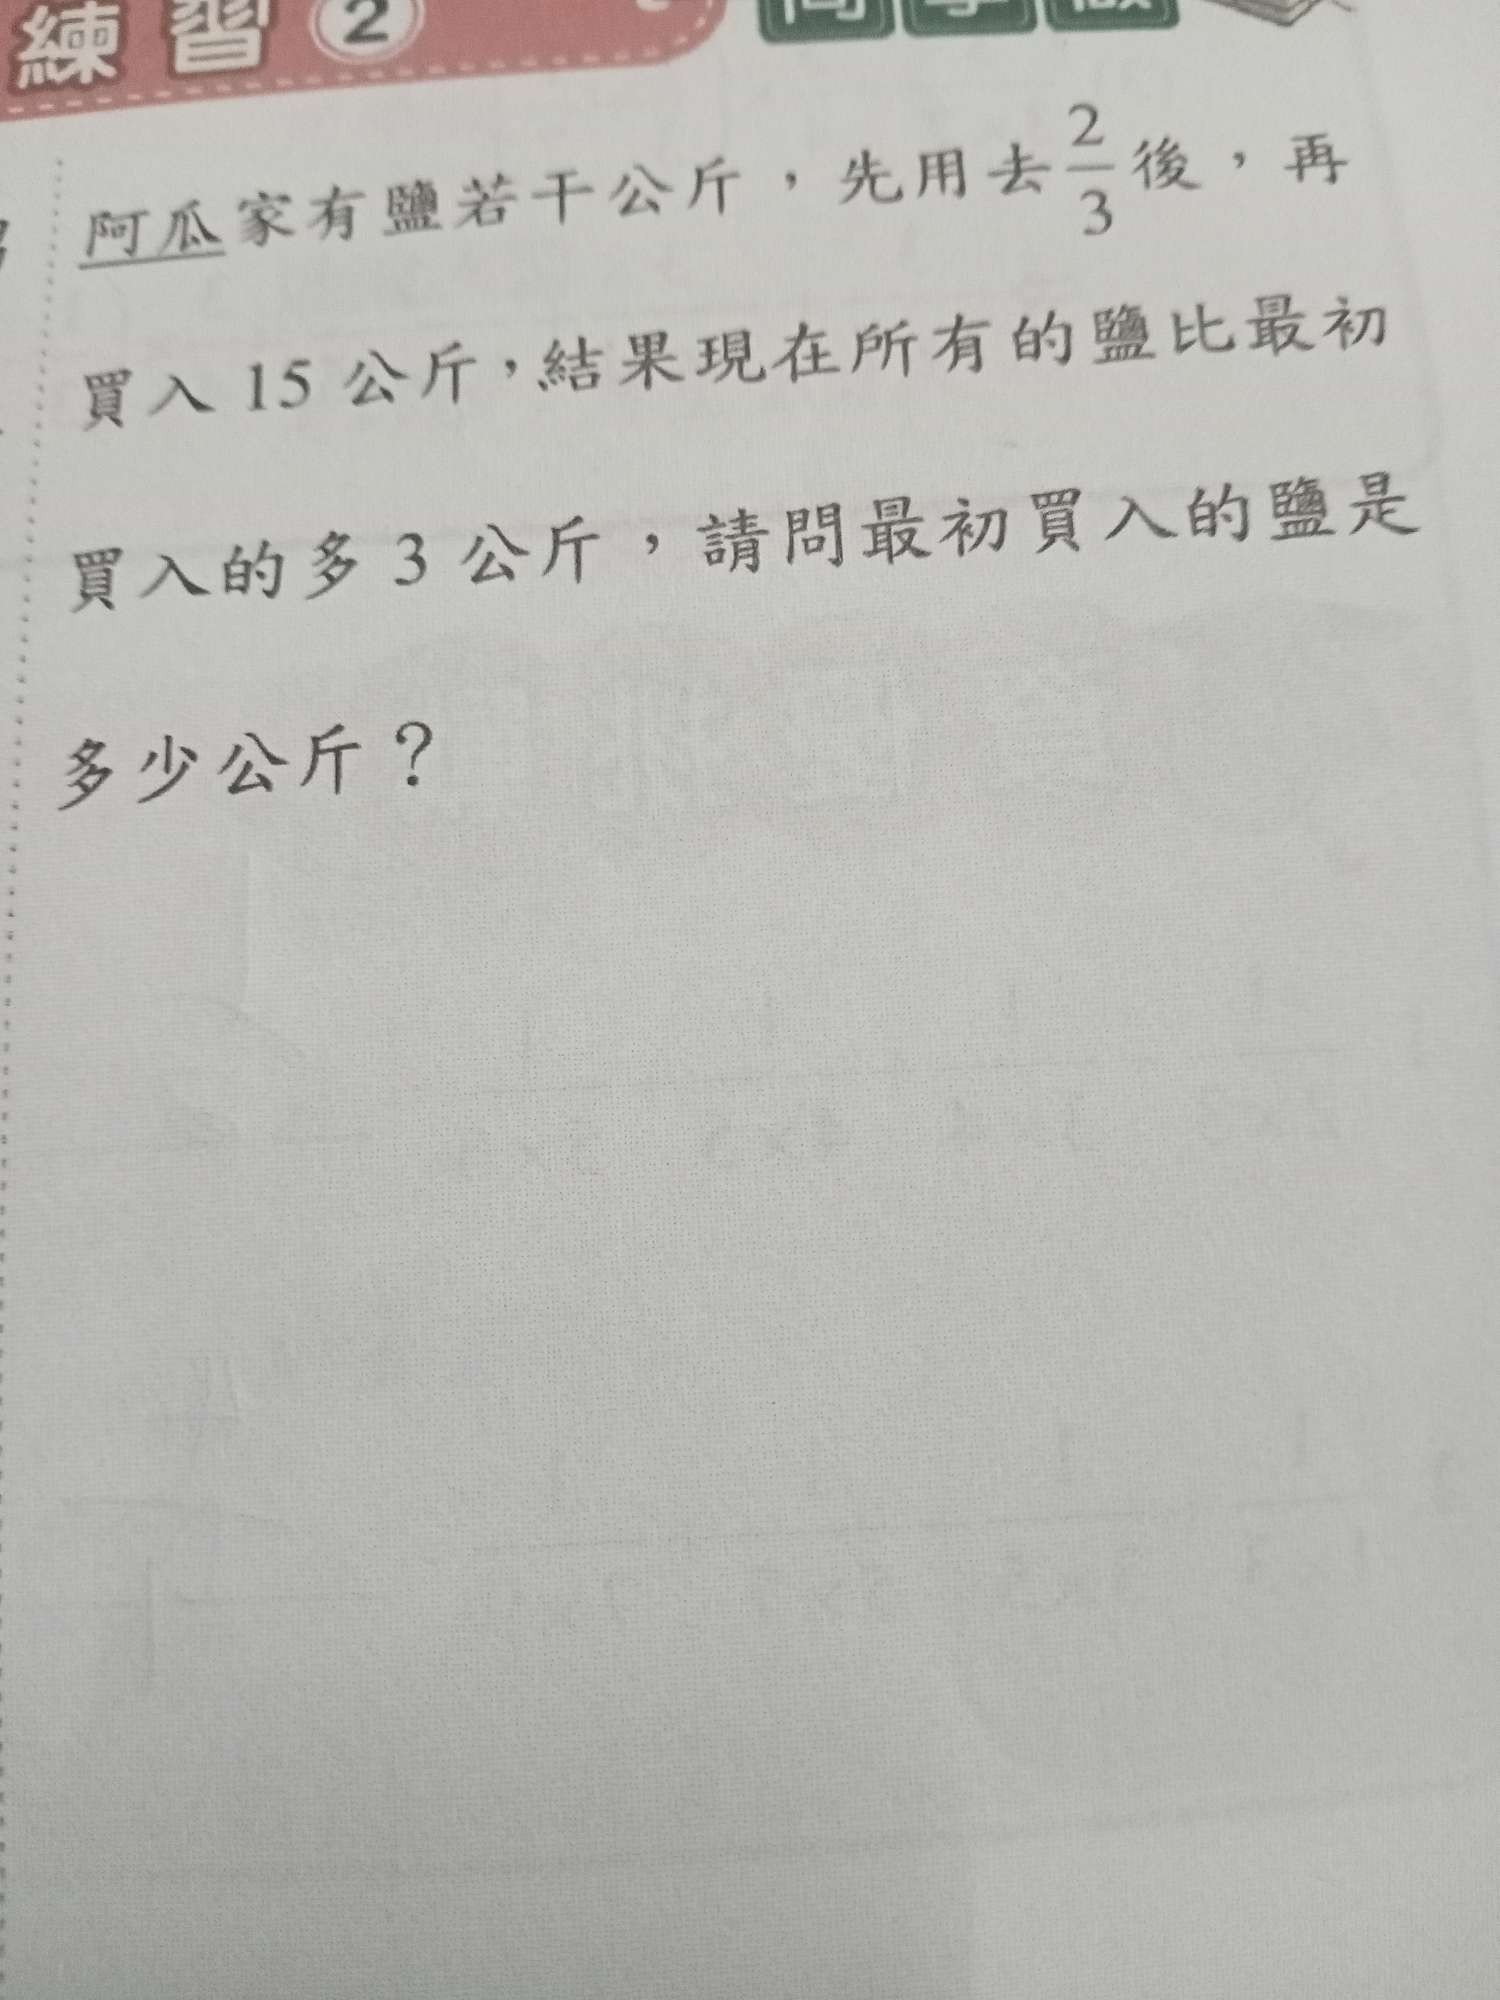 練習2
阿瓜家有鹽若干公斤，先用去2/3後，再
買入15公斤，結果現在所有的鹽比最初
買入的多3公斤，請問最初買入的鹽是
多少公斤？